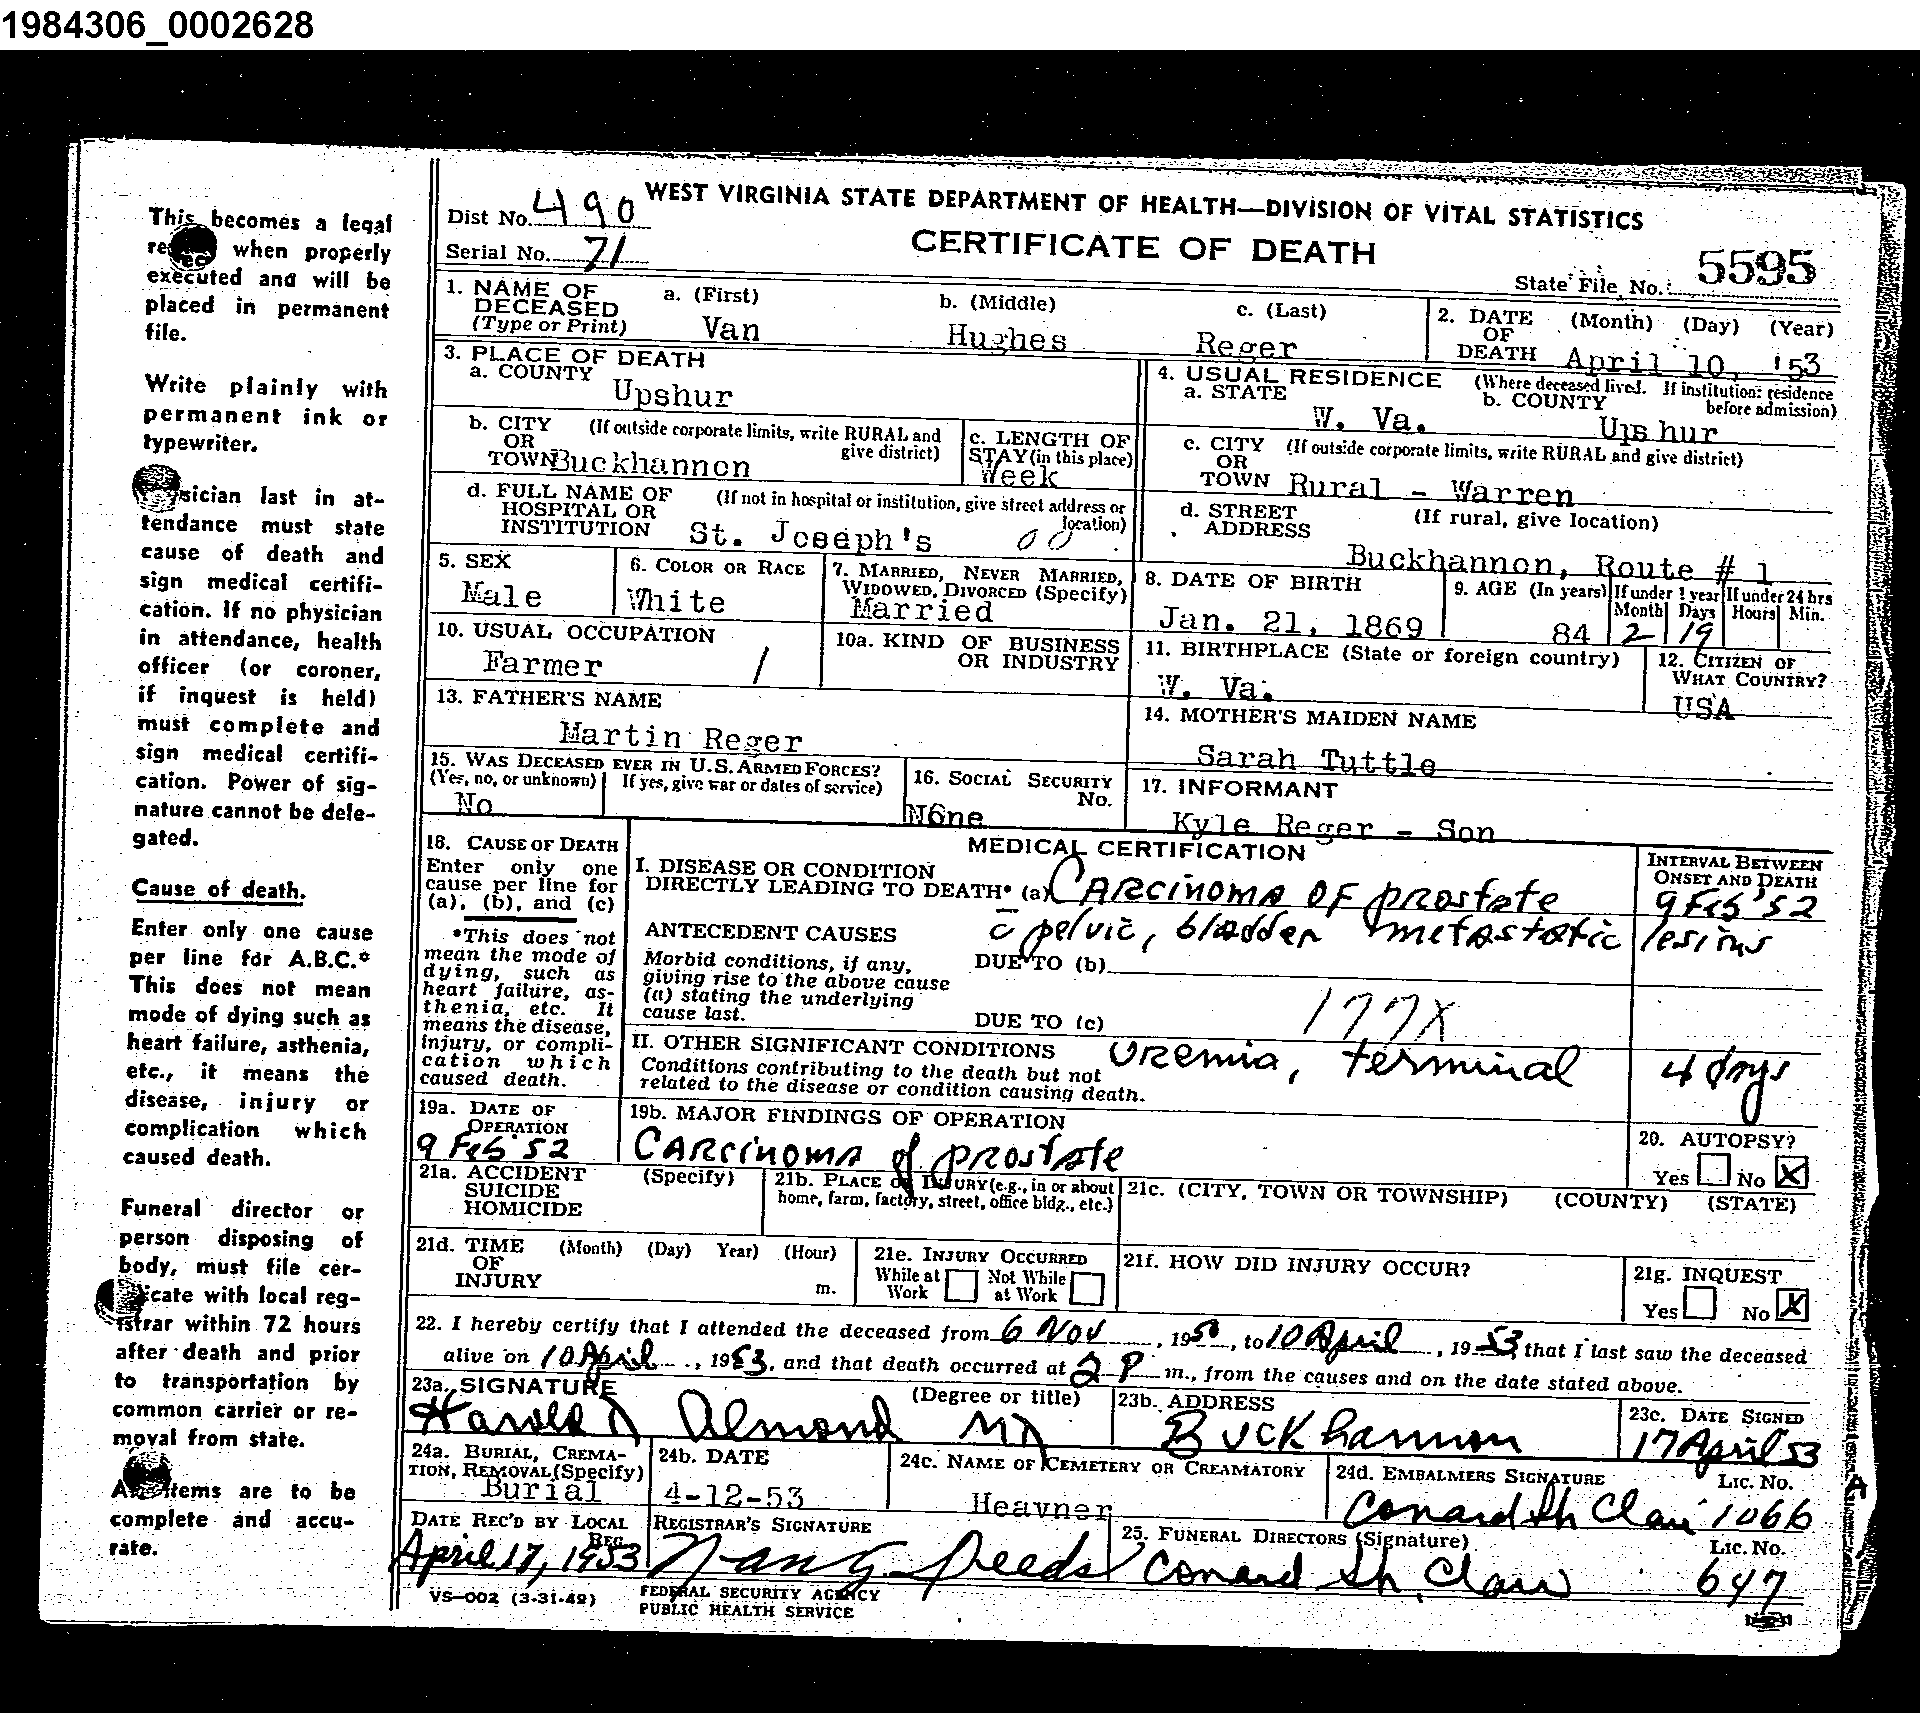 1984306_0002628
This becomes a legal
when properly
executed and will be
placed in permanent
file.
Write plainly with
permanent ink or
typewriter.
sician last in at-
tendance must state
cause of death and
sign medical certifi-
cation. If no physician
in attendance, health
officer (or coroner,
if inquest is held)
must complete and
sign medical certifi-
cation. Power of sig-
nature cannot be dele-
gated.
Cause of death.
Enter only one cause
per line for A.B.C.*
This does not mean
mode of dying such as
heart failure, asthenia,
etc., it means the
disease, injury or
complication which
caused death.
Funeral director or
person disposing of
body, must file cer-
icate with local reg-
istrar within 72 hours
after death and prior
to transportation by
common carrier or re-
moval from state.
items are to be
complete and accu-
rate.
WEST VIRGINIA STATE DEPARTMENT OF HEALTH—DIVISION OF VITAL STATISTICS
Dist No. 490
Serial No. 71
CERTIFICATE OF DEATH
State File No. 5595
1. NAME OF DECEASED (Type or Print) a. (First) Van b. (Middle) Hughes c. (Last) Reger
2. DATE OF DEATH (Month) (Day) (Year) April 10, '53
3. PLACE OF DEATH
a. COUNTY Upshur
4. USUAL RESIDENCE (Where deceased lived. If institution: residence before admission)
a. STATE W. Va. b. COUNTY Upshur
b. CITY OR TOWN (If outside corporate limits, write RURAL and give district) Buckhannon
c. LENGTH OF STAY (in this place) Week
c. CITY OR TOWN (If outside corporate limits, write RURAL and give district) Rural - Warren
d. FULL NAME OF HOSPITAL OR INSTITUTION (If not in hospital or institution, give street address or location) St. Joseph's 00
d. STREET ADDRESS (If rural, give location) Buckhannon, Route # 1
5. SEX Male
6. COLOR OR RACE White
7. MARRIED, NEVER MARRIED, WIDOWED, DIVORCED (Specify) Married
8. DATE OF BIRTH Jan. 21, 1869
9. AGE (In years) 84 If under 1 year Month 2 Days 19 If under 24 hrs Hours Min.
10. USUAL OCCUPATION Farmer /
10a. KIND OF BUSINESS OR INDUSTRY
11. BIRTHPLACE (State or foreign country) W. Va.
12. CITIZEN OF WHAT COUNTRY? USA
13. FATHER'S NAME Martin Reger
14. MOTHER'S MAIDEN NAME Sarah Tuttle
15. WAS DECEASED EVER IN U.S. ARMED FORCES? (Yes, no, or unknown) No If yes, give war or dates of service)
16. SOCIAL SECURITY No. None
17. INFORMANT Kyle Reger - Son
MEDICAL CERTIFICATION
18. CAUSE OF DEATH
Enter only one cause per line for (a), (b), and (c)
*This does not mean the mode of dying, such as heart failure, asthenia, etc. It means the disease, injury, or complication which caused death.
I. DISEASE OR CONDITION DIRECTLY LEADING TO DEATH* (a) Carcinoma of prostate
INTERVAL BETWEEN ONSET AND DEATH 9 Feb '52
c̄ pelvic, bladder metastatic lesions
ANTECEDENT CAUSES
Morbid conditions, if any, giving rise to the above cause (a) stating the underlying cause last.
DUE TO (b)
DUE TO (c) 177X
II. OTHER SIGNIFICANT CONDITIONS uremia, terminal 4 days
Conditions contributing to the death but not related to the disease or condition causing death.
19a. DATE OF OPERATION 9 Feb '52
19b. MAJOR FINDINGS OF OPERATION Carcinoma of prostate
20. AUTOPSY? Yes No X
21a. ACCIDENT SUICIDE HOMICIDE (Specify)
21b. PLACE OF INJURY (e.g., in or about home, farm, factory, street, office bldg., etc.)
21c. (CITY, TOWN OR TOWNSHIP) (COUNTY) (STATE)
21d. TIME OF INJURY (Month) (Day) Year) (Hour) m.
21e. INJURY OCCURRED While at Work Not While at Work
21f. HOW DID INJURY OCCUR?
21g. INQUEST Yes No X
22. I hereby certify that I attended the deceased from 6 Nov, 1950, to 10 April, 1953, that I last saw the deceased
alive on 10 April, 1953, and that death occurred at 2 P m., from the causes and on the date stated above.
23a. SIGNATURE (Degree or title) Harold D Almond MD
23b. ADDRESS Buckhannon
23c. DATE SIGNED 17 April 53
24a. BURIAL, CREMATION, REMOVAL (Specify) Burial
24b. DATE 4-12-53
24c. NAME OF CEMETERY OR CREAMATORY Heavner
24d. EMBALMERS SIGNATURE Lic. No. 1066
DATE REC'D BY LOCAL REG. April 17, 1953
REGISTRAR'S SIGNATURE
25. FUNERAL DIRECTORS (Signature) Lic. No. 647
VS-002 (3-31-49)
FEDERAL SECURITY AGENCY
PUBLIC HEALTH SERVICE